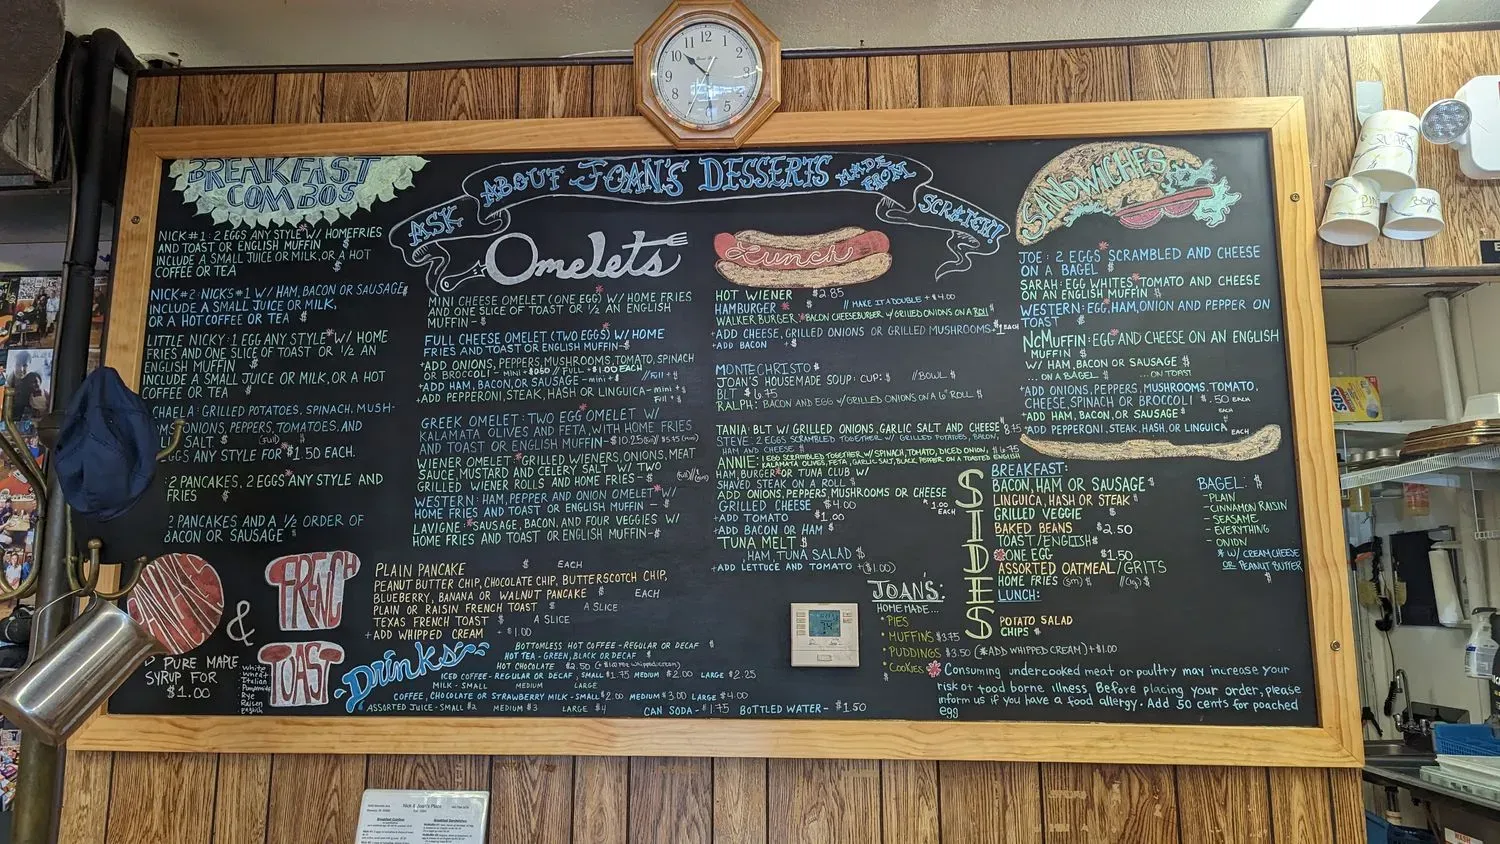 BREAKFAST
COMBOS
NICK #1: 2 EGGS ANY STYLE* W/ HOMEFRIES
AND TOAST OR ENGLISH MUFFIN $
INCLUDE A SMALL JUICE OR MILK, OR A HOT
COFFEE OR TEA $
NICK #2: NICK'S #1 W/ HAM, BACON OR SAUSAGE $
INCLUDE A SMALL JUICE OR MILK,
OR A HOT COFFEE OR TEA $
LITTLE NICKY: 1 EGG ANY STYLE* W/ HOME
FRIES AND ONE SLICE OF TOAST OR 1/2 AN
ENGLISH MUFFIN $
INCLUDE A SMALL JUICE OR MILK, OR A HOT
COFFEE OR TEA $
CHAELA: GRILLED POTATOES, SPINACH, MUSH-
OMS, ONIONS, PEPPERS, TOMATOES, AND
SALT $ (Full)
EGGS ANY STYLE FOR $1.50 EACH.
: 2 PANCAKES, 2 EGGS* ANY STYLE AND
FRIES $
2 PANCAKES AND A 1/2 ORDER OF
BACON OR SAUSAGE $
PANCAKES
&
FRENCH
TOAST
PURE MAPLE
SYRUP FOR
$1.00
White
Wheat
Italian
Rye
Raisin
English
PLAIN PANCAKE $ EACH
PEANUT BUTTER CHIP, CHOCOLATE CHIP, BUTTERSCOTCH CHIP,
BLUEBERRY, BANANA OR WALNUT PANCAKE $ EACH
PLAIN OR RAISIN FRENCH TOAST $ A SLICE
TEXAS FRENCH TOAST $ A SLICE
+ADD WHIPPED CREAM + $1.00
ASK ABOUT JOAN'S DESSERTS MADE FROM SCRATCH!
Omelets
MINI CHEESE OMELET (ONE EGG)* W/ HOME FRIES
AND ONE SLICE OF TOAST OR 1/2 AN ENGLISH
MUFFIN - $
FULL CHEESE OMELET (TWO EGGS)* W/ HOME
FRIES AND TOAST OR ENGLISH MUFFIN - $
+ADD ONIONS, PEPPERS, MUSHROOMS, TOMATO, SPINACH
OR BROCCOLI - MINI + $0.50 // FULL + $1.00 EACH
+ADD HAM, BACON, OR SAUSAGE - mini + $ //Full + $
+ADD PEPPERONI, STEAK, HASH OR LINGUICA - mini + $
Full + $
GREEK OMELET: TWO EGG* OMELET W/
KALAMATA OLIVES AND FETA, WITH HOME FRIES
AND TOAST OR ENGLISH MUFFIN - $10.25
WIENER OMELET: *GRILLED WIENERS, ONIONS, MEAT
SAUCE, MUSTARD AND CELERY SALT W/ TWO
GRILLED WIENER ROLLS AND HOME FRIES - $
WESTERN: HAM, PEPPER AND ONION OMELET* W/
HOME FRIES AND TOAST OR ENGLISH MUFFIN - $
LAVIGNE: *SAUSAGE, BACON, AND FOUR VEGGIES W/
HOME FRIES AND TOAST OR ENGLISH MUFFIN - $
Drinks
BOTTOMLESS HOT COFFEE - REGULAR OR DECAF $
HOT TEA - GREEN, BLACK OR DECAF $
HOT CHOCOLATE $2.50 (+$1.00 FOR whipped cream)
ICED COFFEE - REGULAR OR DECAF, SMALL $1.75 MEDIUM $2.00 LARGE $2.25
MILK - SMALL MEDIUM LARGE
COFFEE, CHOCOLATE OR STRAWBERRY MILK - SMALL $2.00 MEDIUM $3.00 LARGE $4.00
ASSORTED JUICE - SMALL $2 MEDIUM $3 LARGE $4
CAN SODA - $1.75 BOTTLED WATER - $1.50
Lunch
HOT WIENER $2.85
HAMBURGER * $ // MAKE IT A DOUBLE + $4.00
WALKER BURGER: *BACON CHEESEBURGER W/ GRILLED ONIONS ON A ROLL
+ADD CHEESE, GRILLED ONIONS OR GRILLED MUSHROOMS - $1 EACH
+ADD BACON + $
MONTE CHRISTO $
JOAN'S HOUSEMADE SOUP: CUP: $ //BOWL $
BLT $6.75
RALPH: BACON AND EGG W/ GRILLED ONIONS ON A 6" ROLL $
TANIA: BLT W/ GRILLED ONIONS, GARLIC SALT AND CHEESE
STEVE: 2 EGGS SCRAMBLED TOGETHER W/ GRILLED POTATOES, BACON,
HAM AND CHEESE $
ANNIE: 1 EGG SCRAMBLED TOGETHER W/ SPINACH, TOMATO, DICED ONION,
KALAMATA OLIVES, FETA, GARLIC SALT, BLACK PEPPER ON A TOASTED ENGLISH
HAMBURGER* OR TUNA CLUB W/
SHAVED STEAK ON A ROLL $
ADD ONIONS, PEPPERS, MUSHROOMS OR CHEESE $1.00 EACH
GRILLED CHEESE $4.00
+ADD TOMATO $1.00
+ADD BACON OR HAM $
TUNA MELT $
HAM, TUNA SALAD $
+ADD LETTUCE AND TOMATO +($1.00)
JOAN'S:
HOMEMADE...
*PIES
*MUFFINS $3.75
*PUDDINGS $3.50 (*ADD WHIPPED CREAM) +$1.00
*COOKIES
SANDWICHES
JOE: 2 EGGS* SCRAMBLED AND CHEESE
ON A BAGEL $
SARAH: EGG WHITES,* TOMATO AND CHEESE
ON AN ENGLISH MUFFIN $
WESTERN: EGG,* HAM, ONION AND PEPPER ON
TOAST $
NCMUFFIN: EGG* AND CHEESE ON AN ENGLISH
MUFFIN $
W/ HAM, BACON OR SAUSAGE $
... ON A BAGEL $ ... ON TOAST
+ADD ONIONS, PEPPERS, MUSHROOMS, TOMATO,
CHEESE, SPINACH OR BROCCOLI $.50 EACH
+ADD HAM, BACON, OR SAUSAGE $ EACH
+ADD PEPPERONI, STEAK, HASH, OR LINGUICA EACH
SIDES
BREAKFAST:
BACON, HAM OR SAUSAGE $
LINGUICA, HASH OR STEAK $
GRILLED VEGGIE $
BAKED BEANS $2.50
TOAST/ENGLISH $
*ONE EGG $1.50
ASSORTED OATMEAL/GRITS
HOME FRIES (sm) $ //(lg) $
LUNCH:
POTATO SALAD
CHIPS $
BAGEL: $
- PLAIN
- CINNAMON RAISIN
- SEASAME
- EVERYTHING
- ONION
* W/ CREAM CHEESE
OR PEANUT BUTTER
$
* Consuming undercooked meat or poultry may increase your
risk of food borne illness. Before placing your order, please
inform us if you have a food allergy. Add 50 cents for poached
egg
Nick & Joan's Place